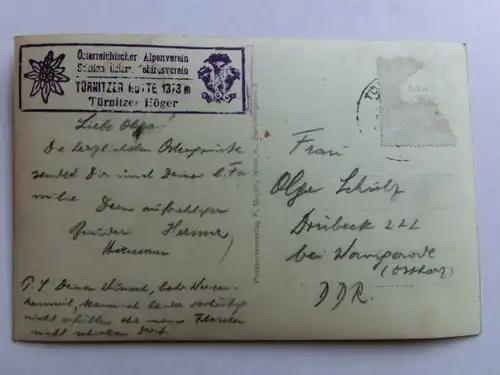 Österreichischer Alpenverein
Sektion Österr. Gebirgsverein
TÜRNITZER HÜTTE 1373 m
Türnitzer Höger
Liebe Olga!
Die herzlichsten Ostergrüße
sendet Dir und Deiner l. Fa-
milie
Dein aufrichtiger
Bruder
Hermann
P. S. Deinen Wunsch, betr.
kann ich leider vorläufig
nicht erfüllen, die
nicht schicken darf.
Postkartenverlag F. Mörtl, Wien,
Frau
Olga Schulz
Drübeck 222
bei Wernigerode
(Ostharz)
DDR.